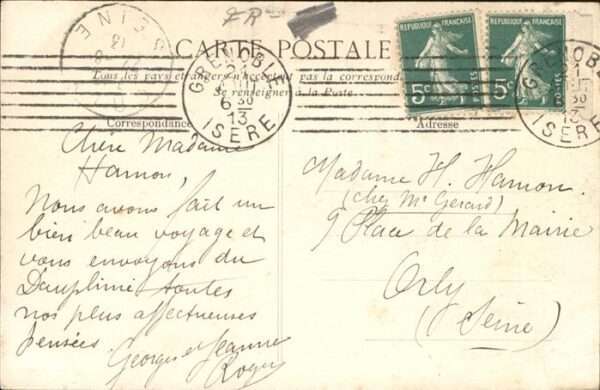 CARTE POSTALE
Tous les pays étrangers n'acceptent pas la correspondance
Se renseigner à la Poste
Correspondance
Adresse
SEINE
13
GRENOBLE
6 30
13
ISERE
REPUBLIQUE FRANÇAISE
5c
POSTES
REPUBLIQUE FRANÇAISE
5c
POSTES
GRENOBLE
30
13
ISERE
Chère Madame
Hamon,
Nous avons fait un
bien beau voyage et
vous envoyons du
Dauphiné toutes
nos plus affectueuses
pensées.
Georges et Jeanne
Roger
Madame H. Hamon
(chez Mr Gerard)
9 Place de la Mairie
Orly
(Seine)